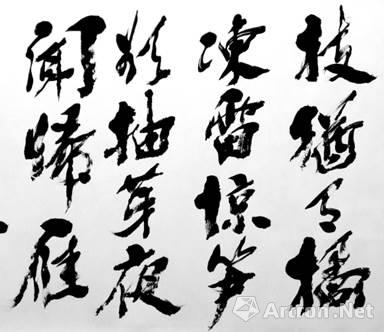 枝猶有橘
凍雷惊笋
欲抽芽夜
聞歸雁
Artron.Net